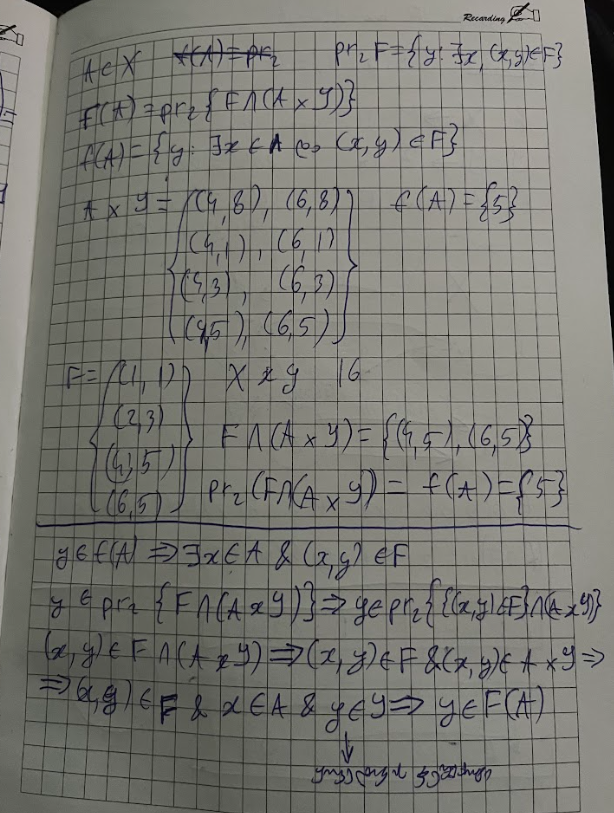 Recording
A ⊂ X f(A) = pr₂ pr₂ F = {y: ∃x, (x,y) ∈ F}
f(A) = pr₂ {F ∩ (A × Y)}
f(A) = {y: ∃x ∈ A (x, y) ∈ F}
A × Y = {(4,8), (6,8) f(A) = {5}
(4,1), (6,1)
(4,3), (6,3)
(4,5), (6,5)}
F = {(1,1) X × Y 16
(2,3)
(4,5) F ∩ (A × Y) = {(4,5), (6,5)}
(6,5)} pr₂(F ∩ (A × Y)) = f(A) = {5}
y ∈ f(A) ⇒ ∃x ∈ A & (x,y) ∈ F
y ∈ pr₂ {F ∩ (A × Y)} ⇒ y ∈ pr₂ {{(x,y) ∈ F} ∩ (A × Y)}
(x,y) ∈ F ∩ (A × Y) ⇒ (x,y) ∈ F & (x,y) ∈ A × Y ⇒
⇒ (x,y) ∈ F & x ∈ A & y ∈ Y ⇒ y ∈ F(A)